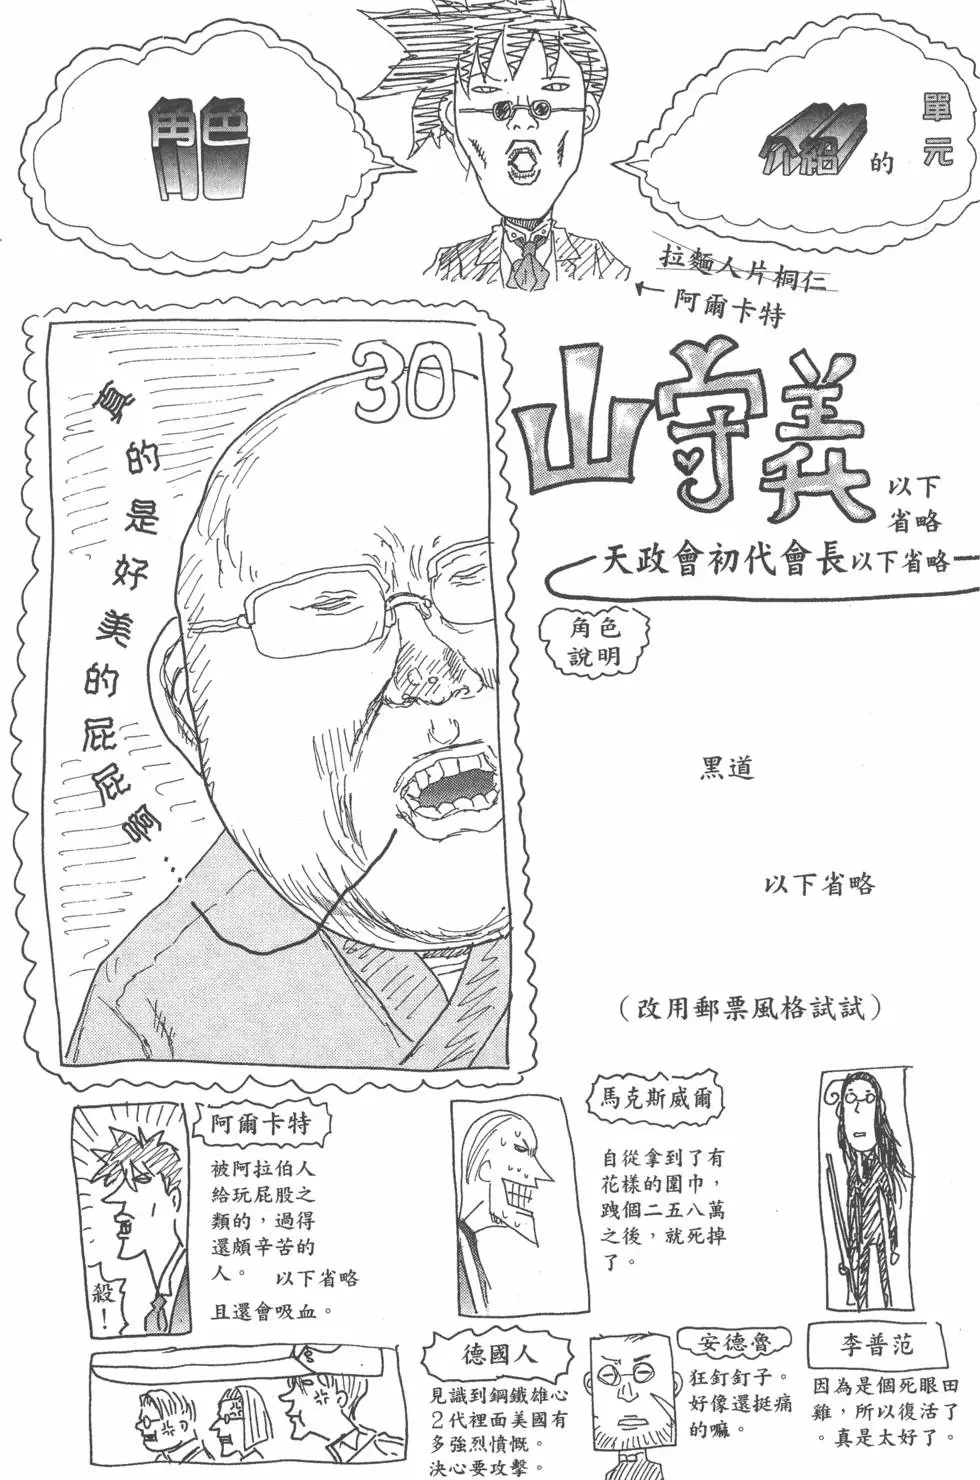 角色
介紹的
單元
拉麵人片桐仁
阿爾卡特
30
真的是好美的屁屁啊…
山守義
以下
省略
天政會初代會長以下省略
角色
說明
黑道
以下省略
(改用郵票風格試試)
阿爾卡特
被阿拉伯人
給玩屁股之
類的，過得
還頗辛苦的
人。 以下省略
且還會吸血。
殺！
馬克斯威爾
自從拿到了有
花樣的圍巾，
跩個二五八萬
之後，就死掉
了。
德國人
見識到鋼鐵雄心
2代裡面美國有
多強烈憤慨。
決心要攻擊。
安德魯
狂釘釘子。
好像還挺痛
的嘛。
李普范
因為是個死眼田
雞，所以復活了
。真是太好了。